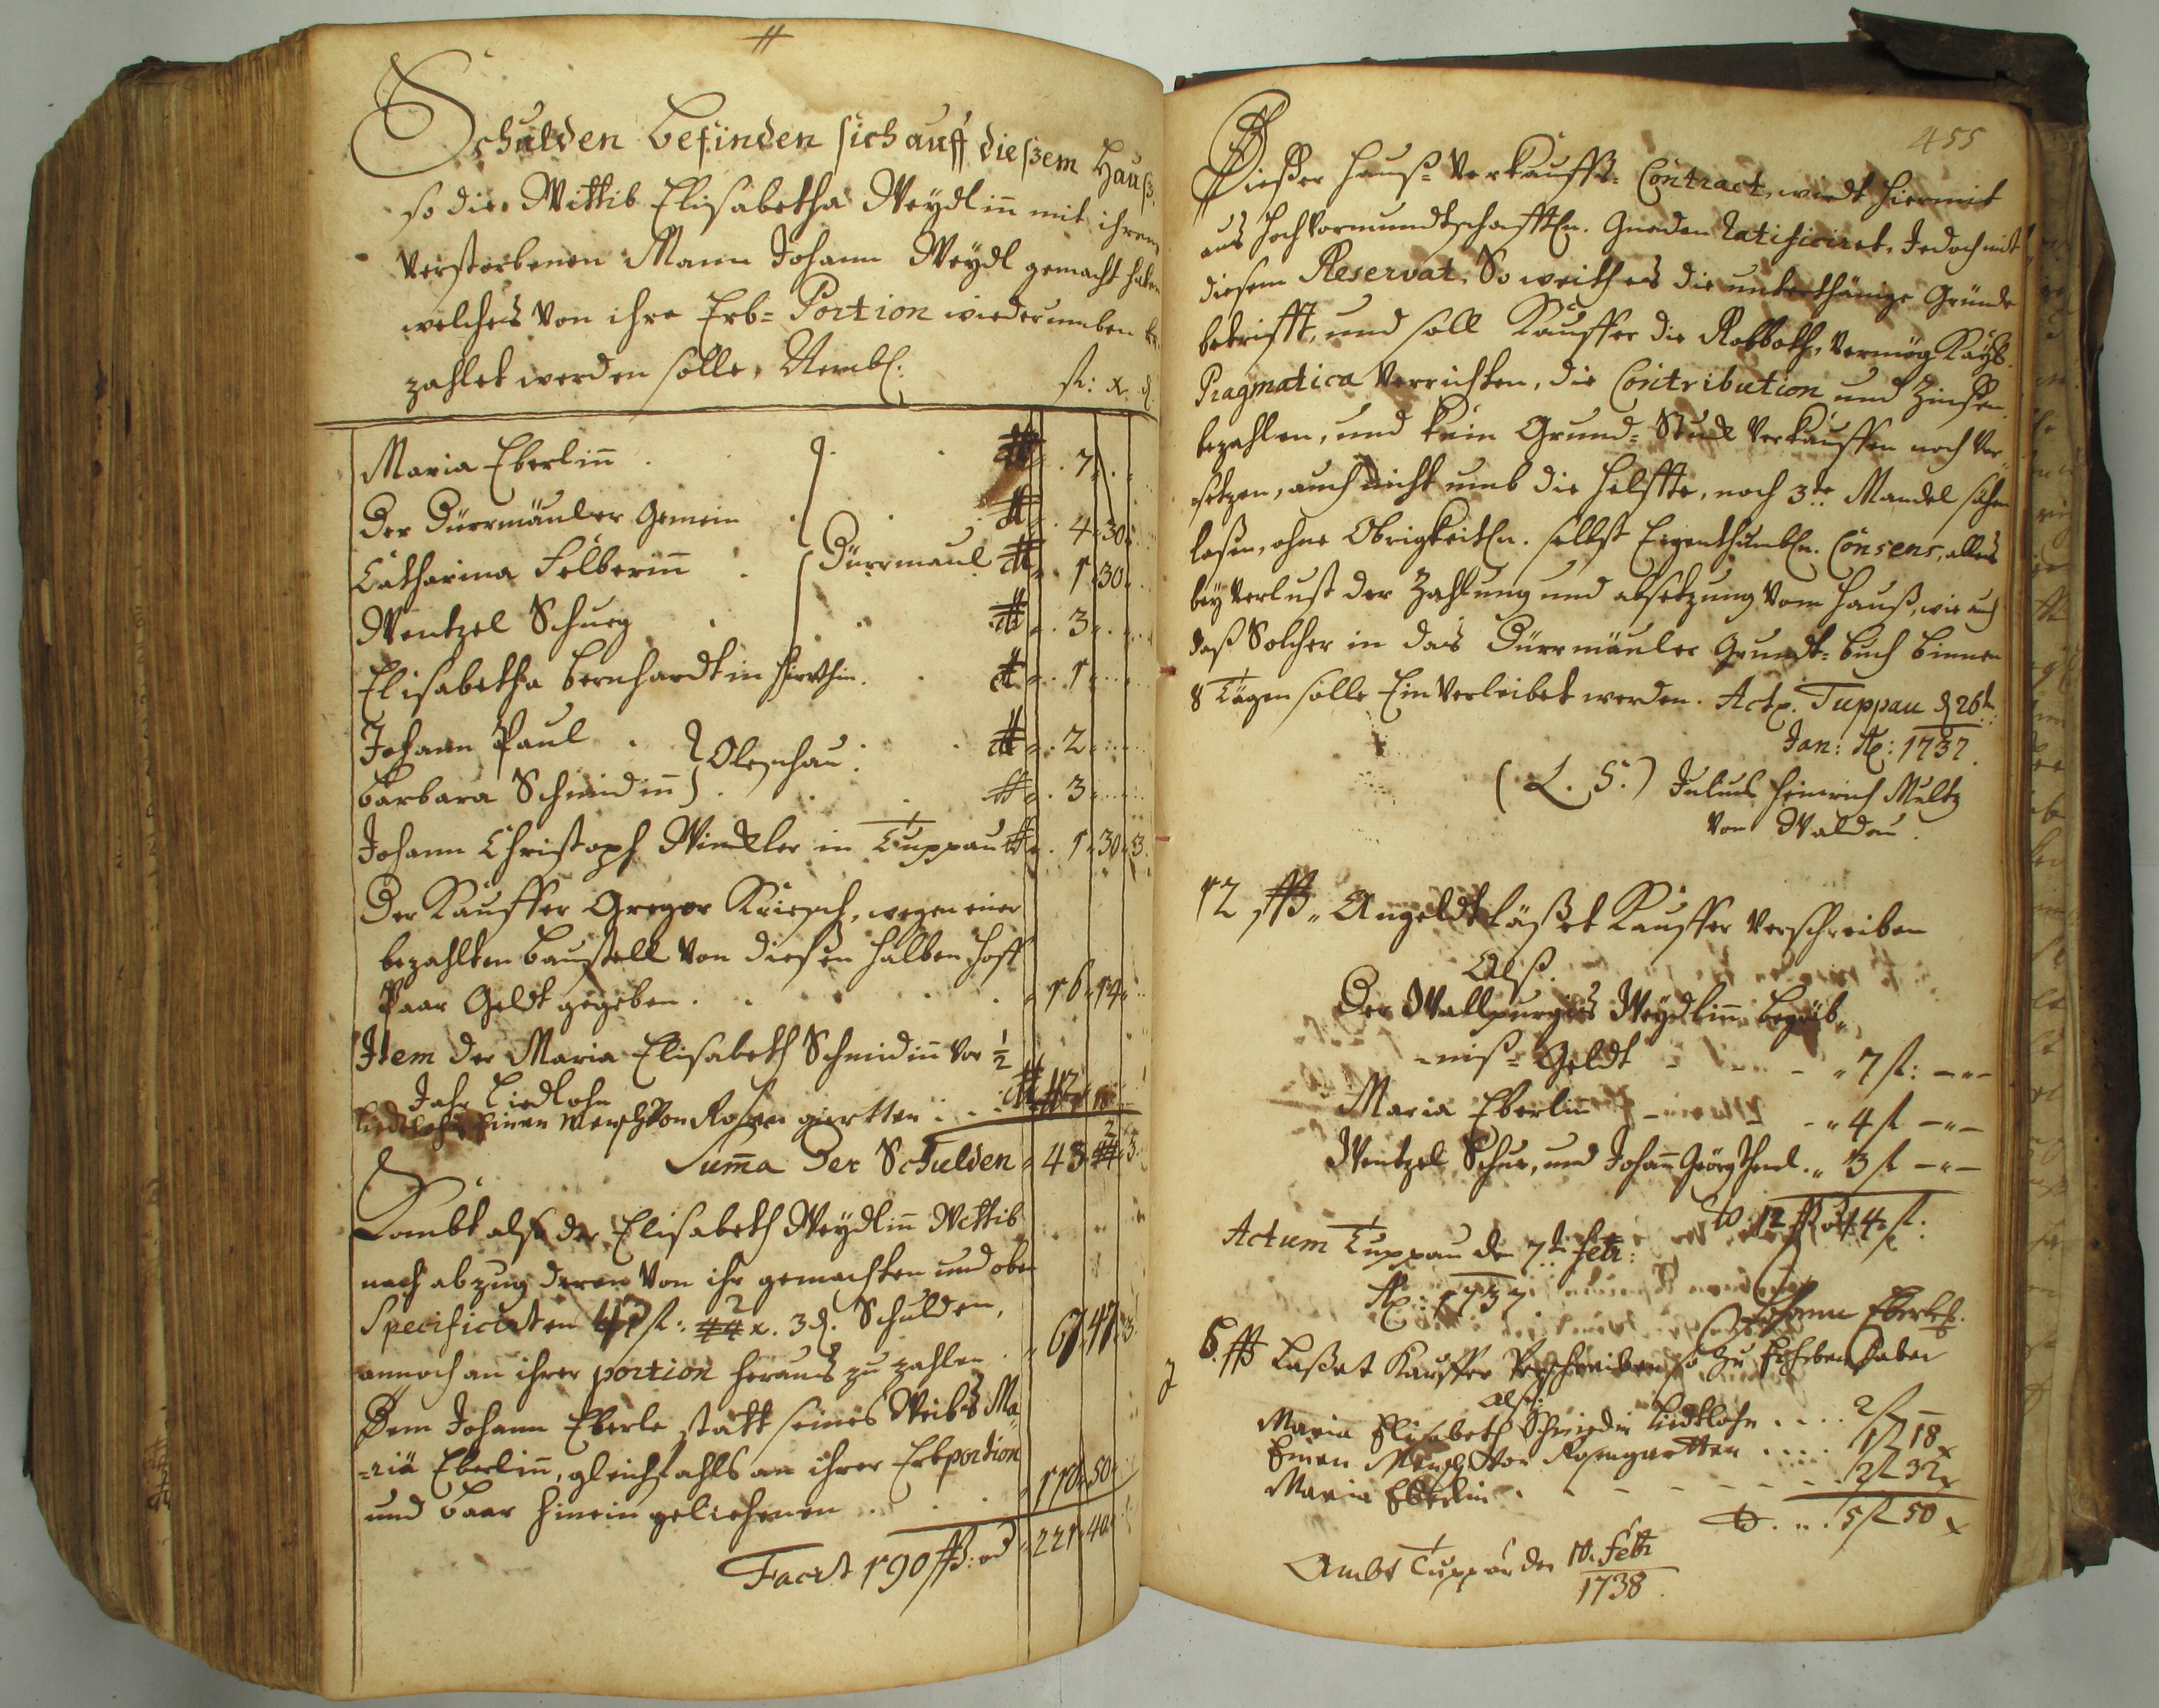 Schulden befinden sich auff dießem Hauß.
so die Wittib Elisabetha Weydlin mit ihrem
verstorbenen Mann Johann Weydl gemacht haben
welches von ihre Erb= Portion wiederumben be-
zahlet werden solle, Nembl:
fl: x. d.
Maria Eberlin . 7 .
Der Dürrmäuler Gemein . 4 30
Catharina Felberin . Dürrmaul 1 30
Wentzel Schurg . 3
Elisabetha Bernhardt in . 1
Johann Paul . Oleschau . 2
Barbara Schmidin . 3
Johann Christoph Winckler in Tuppau . 1 30 3
Der Kauffer Gregor Kriesch, wegen einer
bezahlten Baustell von diesen halben Hoff
Paar Geldt gegeben . 16 14
Item der Maria Elisabeth Schmidin vor ½
Jahr Liedlohn
Liedlohn Einen Mensch von Rosengartten . 18
Suma der Schulden 43 2 3
Kombt also der Elisabeth Weydlin Wittib
nach abzug deren von ihr gemachten und oben
Specificirten 43 fl: 2 x. 3 d. Schulden,
annoch an ihrer portion heraus zu zahlen . 67 47 3
Dem Johann Eberle statt seines Weibs Ma-
-riä Eberlin, gleichfahls an ihrer Erbportion
und baar hinein geliehenen . 110 50
Facit 190 ß: od 221 40
455
Dießer Hauß= Verkauffs= Contract, wirdt hiermit
aus HochVormundtschafftln. Gnaden Ratificiret, Jedoch mit
diesem Reservat, So weith es die unterthänige Gründe
betrifft, und soll Kauffer die Robboth, vermög Kayß.
Pragmatica verrichten, die Contribution und Zinßen
bezahlen, und kein Grund= Stuck verkauffen noch ver-
setzen, auch nicht umb die Helffte, noch 3te Mandel sähen
laßen, ohne Obrigkeitln. selbst Eigenthumbln. Consens, alles
bey verlust der Zahlung und absetzung vom Hauß, wie auch
daß Solcher in das Dürrmäuler Grundt= Buch binnen
8 Tägen solle Einverleibet werden. Actu. Tuppau d 26t
Jan: Ao: 1737.
(L. S.) Julius Heinrich Meltz
von Waldau.
12 ß Angeldt läßet Kauffer verschreiben
Alß.
Der Wallpurgis Weydlin begräb-
-niß= Geldt - 7 fl: -"-
Maria Eberlin - 4 fl -"-
Wentzel Schur, und Johan Geörg . 3 fl -"-
12 ß od 14 fl:
Actum Tuppau den 7t Febr:
Ao: 1737
Johann Eberl
5. ß Laßet Kauffer verschreiben so zu haben
Alß:
Maria Elisabeth Schmiedin Liedtlohn .... 2 fl -
Einen Mensch von Rosengartten .... 1 fl 18 x
Maria Eberlin . - - - - 2 fl 32 x
5 fl 50 x
Ambt Tuppau den 10. Febr
1738.